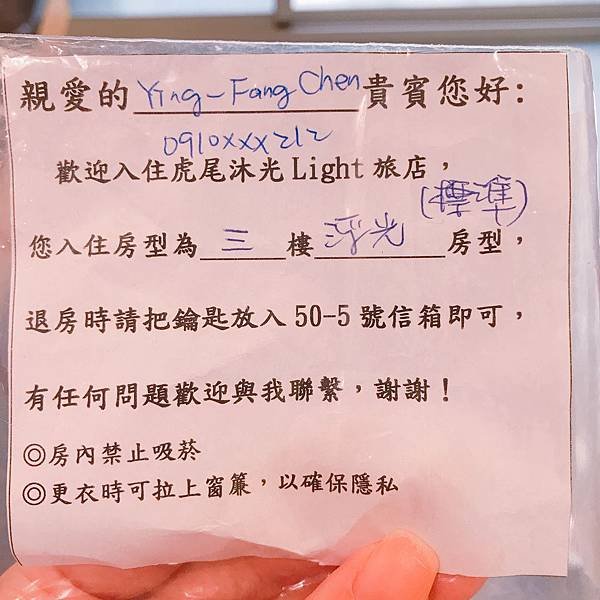 親愛的 Ying-Fang Chen 貴賓您好：
0910xxx212
歡迎入住虎尾沐光Light旅店，
(標準)
您入住房型為 三 樓 浮光 房型，
退房時請把鑰匙放入50-5號信箱即可，
有任何問題歡迎與我聯繫，謝謝！
◎房內禁止吸菸
◎更衣時可拉上窗簾，以確保隱私